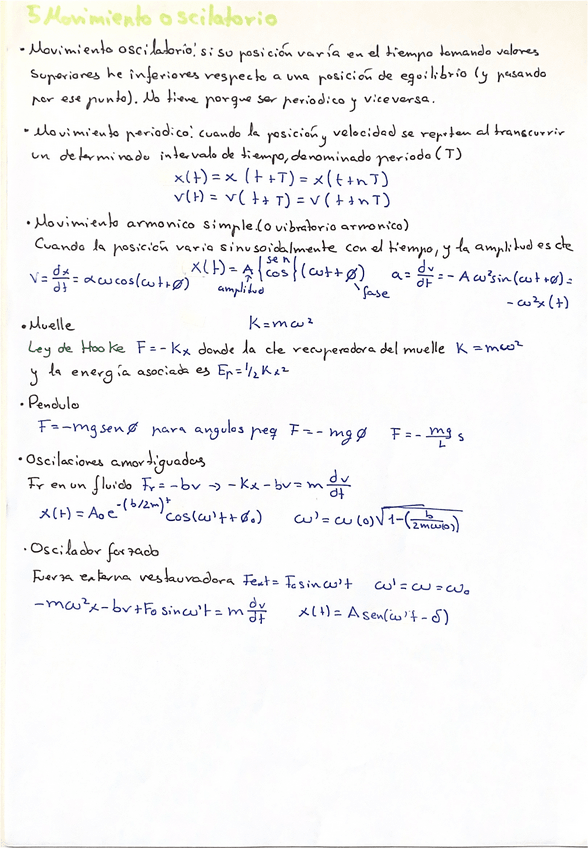 5 Movimiento oscilatorio
· Movimiento oscilatorio: si su posición varía en el tiempo tomando valores
superiores he inferiores respecto a una posición de egoilibrio (y pasando
por ese punto). No tiene porque ser periodico y viceversa.
· Movimiento periodico: cuando la posición y velocidad se repiten al transcurrir
un determinado intervalo de tiempo, denominado periodo (T)
x(t) = x (t+T) = x(t+nT)
v(t) = v(t+T) = v(t+nT)
· Movimiento armonico simple (o vibratorio armonico)
Cuando la posición varia sinusoidalmente con el tiempo, y la amplitud es cte
V = dx/dt = αωcos(ωt+Ø) x(t) = A {sen cos} (ωt+Ø) a = dv/dt = -Aω²sin(ωt+Ø) =
amplitud fase -ω²x(t)
· Muelle K = mω²
Ley de Hooke F = -Kx donde la cte recuperadora del muelle K = mω²
y la energía asociada es Ep = 1/2 Kx²
· Pendulo
F = -mg senØ para angulos peq F = -mgØ F = - mg/L s
· Oscilaciones amortiguadas
Fr en un fluido Fr = -bv → -Kx - bv = m dv/dt
x(t) = A₀e^-(b/2m)t cos(ω't+Ø₀) ω' = ω(0)√1-(b/2mω(0))
· Oscilador forzado
Fuerza externa restauradora Fext = F₀sinω't ω' = ω = ω₀
-mω²x - bv + F₀sinω't = m dv/dt x(t) = A sen(ω't - δ)